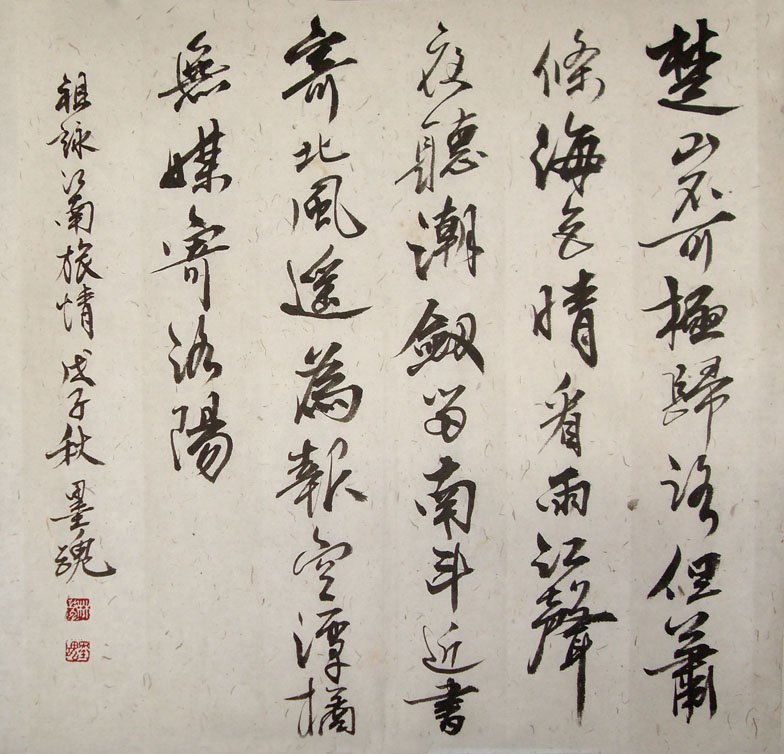 楚山不可極歸路但蕭
條海色晴看雨江聲
夜聽潮劔留南斗近書
寄北風遥為報空潭橘
無媒寄洛陽
祖詠江南旅情戊子秋墨魂